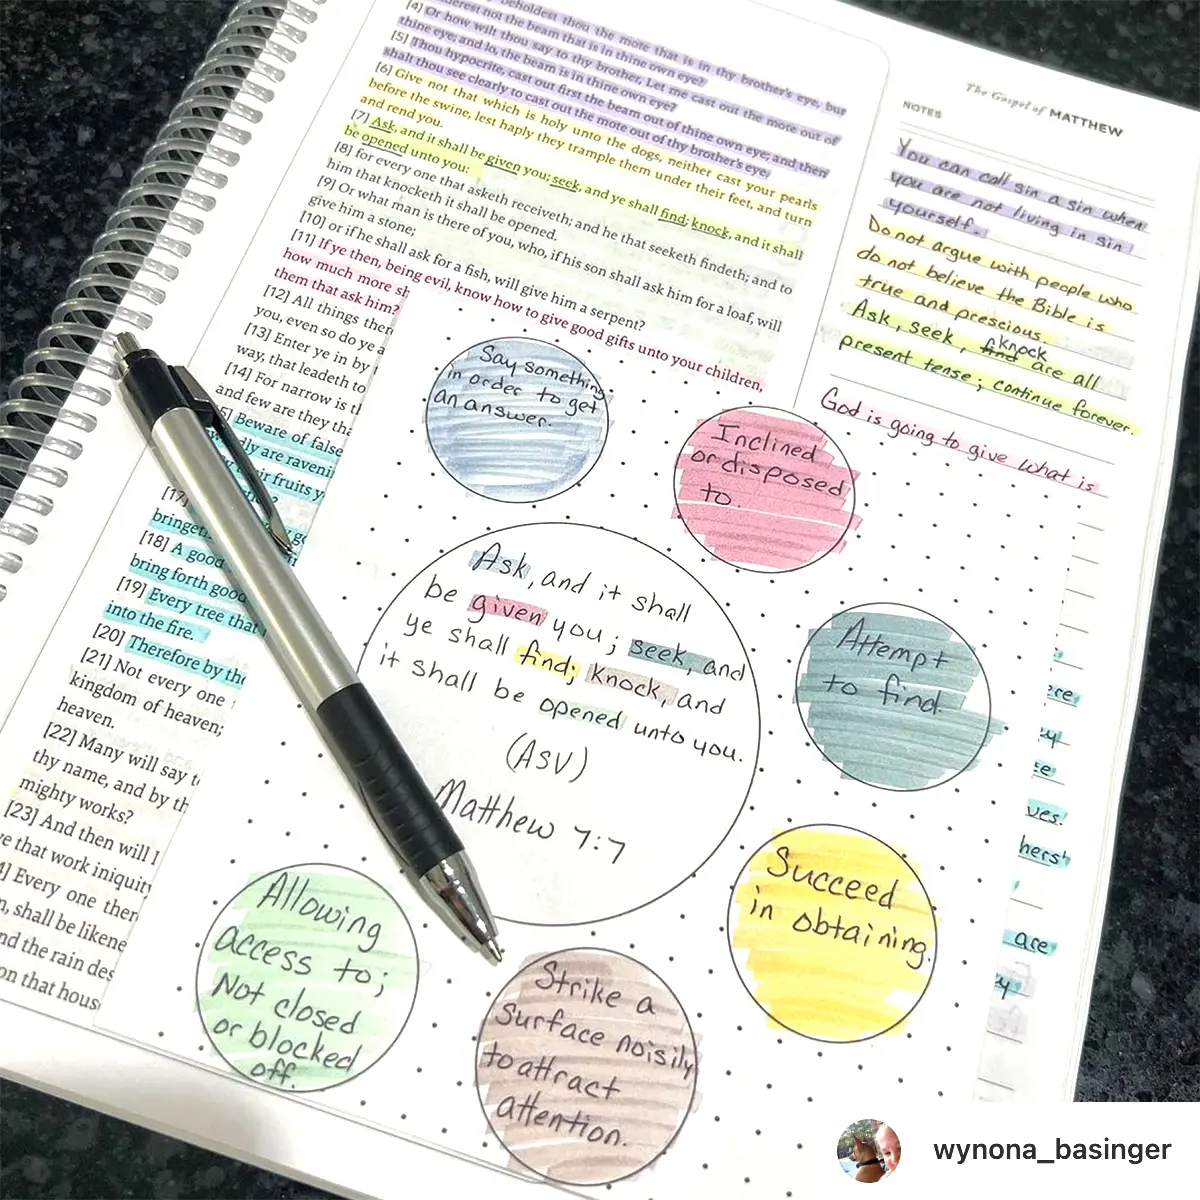 beholdest thou the mote that is in thy brother's eye, but
not the beam that is in thine own eye?
[4] Or how wilt thou say to thy brother, Let me cast out the mote out of
thine eye; and lo, the beam is in thine own eye?
[5] Thou hypocrite, cast out first the beam out of thine own eye; and then
shalt thou see clearly to cast out the mote out of thy brother's eye.
[6] Give not that which is holy unto the dogs, neither cast your pearls
before the swine, lest haply they trample them under their feet, and turn
and rend you.
[7] Ask, and it shall be given you; seek, and ye shall find; knock, and it shall
be opened unto you:
[8] for every one that asketh receiveth; and he that seeketh findeth; and to
him that knocketh it shall be opened.
[9] Or what man is there of you, who, if his son shall ask him for a loaf, will
give him a stone;
[10] or if he shall ask for a fish, will give him a serpent?
[11] If ye then, being evil, know how to give good gifts unto your children,
how much more
them that ask him?
[12] All things
you, even so do ye
[13] Enter ye in by
way, that leadeth to
[14] For narrow is
and few are they
Beware of false
are
fruits
[17]
[18] A good
bring forth good
[19] Every tree that
into the fire.
[20] Therefore by
[21] Not every one
kingdom of heaven;
heaven.
[22] Many will say
thy name, and by
mighty works?
[23] And then will I
that work
Every one
shall be
the rain
on that
The Gospel of MATTHEW
NOTES
You can call sin a sin when
you are not living in sin
yourself.
Do not argue with people who
do not believe the Bible is
true and prescious.
Ask, seek, knock are all
present tense; continue forever.
God is going to give what is
Say something
in order to get
an answer.
Inclined
or disposed
to.
Ask, and it shall
be given you; seek, and
ye shall find; knock, and
it shall be opened unto you.
(ASV)
Matthew 7:7
Attempt
to find.
Succeed
in obtaining.
Allowing
access to;
Not closed
or blocked
off.
Strike a
surface noisily
to attract
attention.
are
wynona_basinger